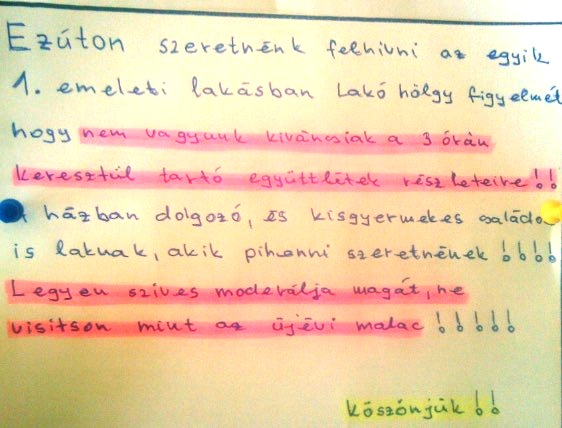 Ezúton szeretnénk felhívni az egyik
1. emeleti lakásban lakó hölgy figyelmét
hogy nem vagyunk kiváncsiak a 3 órán
keresztül tartó együttlétek részleteire!!
A házban dolgozó, és kisgyermekes családo
is laknak, akik pihenni szeretnének!!!!
Legyen szíves moderálja magát, ne
visítson mint az újévi malac!!!!!
köszönjük!!